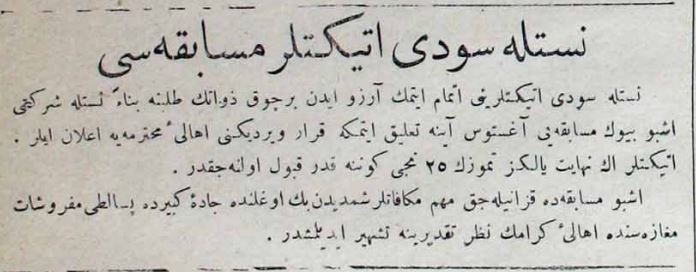 نستله سودی اتیکتلر مسابقه‌سی
نستله سودی اتیکتلرینی اتمام ایتمك آرزو ایدن برچوق ذواتك طلبنه بناءً نستله شرکتی
اشبو بیوك مسابقه‌یی آغستوس آینه تعلیق ایتمکه قرار ویردیکنی اهالیٔ محترمه‌یه اعلان ایلر .
اتیکتلر اك نهایت یالکز تموزك ٢٥ نجی کوننه قدر قبول اولنه‌جقدر .
اشبو مسابقه‌ده قزانیله‌جق مهم مکافاتلر شمدیدن بك اوغلنده جادهٔ کبیرده پسالطی مفروشات
مغازه‌سنده اهالیٔ کرامك نظر تقدیرینه تشهیر ایدیلمشدر .